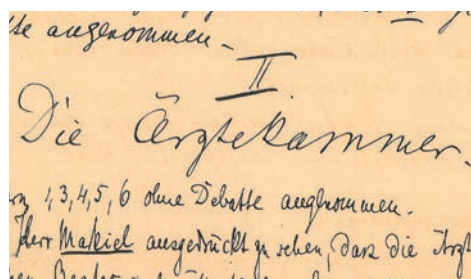 te angenommen.-
II.
Die Ärztekammer.
1, 3, 4, 5, 6 ohne Debatte angenommen.-
Herr Makiel ausgedrückt zu sehen, dass die Ärzt